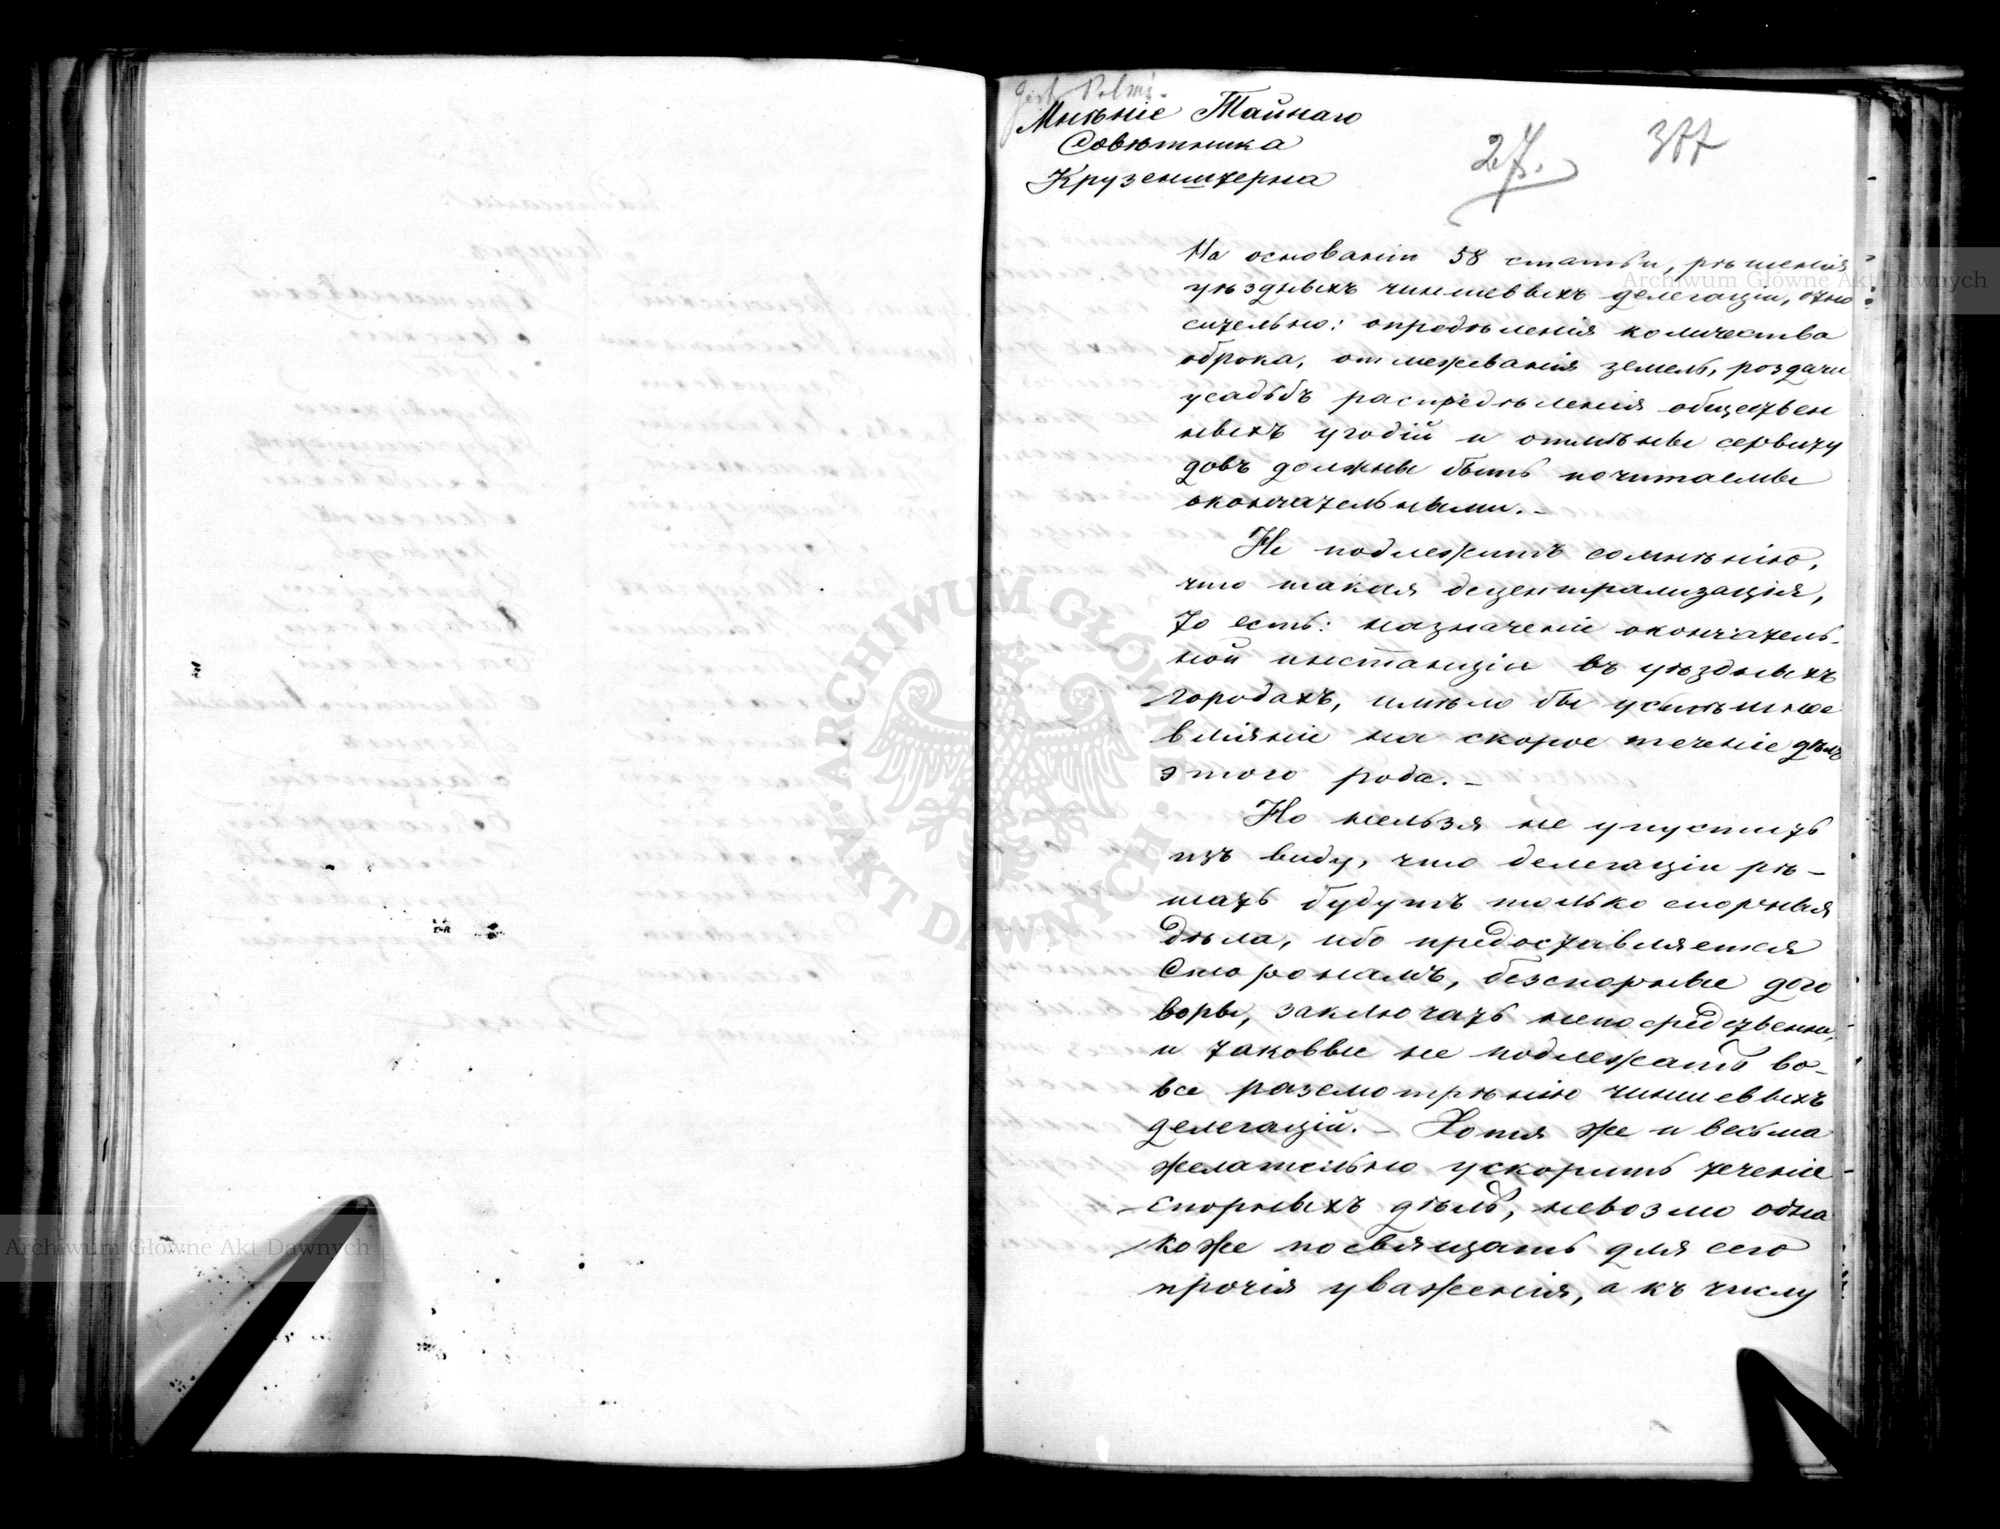 Мнѣніе Тайнаго
Совѣтника
Крузенштерна
27.
377
На основаніи 58 статьи, рѣшенія
уѣздныхъ чиншевыхъ делегацій, отно
сительно: опредѣленія количества
оброка, отмежеванія земель, роздачи
усадьбъ распредѣленія обществен
ныхъ угодій и отмѣны сервиту
довъ должны быть почитаемы
окончательными. –
Не подлежитъ сомнѣнію,
что такая децентрализація,
то есть: назначеніе окончатель-
ной инстанціи въ уѣздныхъ
городахъ, имѣло бы успѣшное
вліяніе на скорое теченіе дѣлъ
этого рода. –
Но нельзя не упустить
изъ виду, что делегаціи рѣ-
шать будутъ только спорныя
дѣла, ибо предоставляется
Сторонамъ, безспорные дого
воры, заключать непосредственно,
и таковые не подлежатъ во-
все разсмотрѣнію чиншевыхъ
делегацій. – Хотя же и весьма
желательно ускорить теченіе
спорныхъ дѣлъ, невозмо одна
коже посвящать для сего
прочія уваженія, а къ числу
Archiwum Główne Akt Dawnych
Archiwum Główne Akt Dawnych
ARCHIWUM GŁÓWNE AKT DAWNYCH